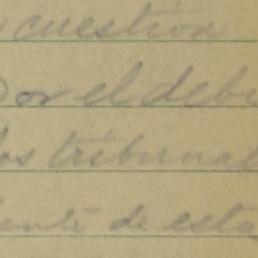 cuestión
Por el debi
los tribunal
ente de esta